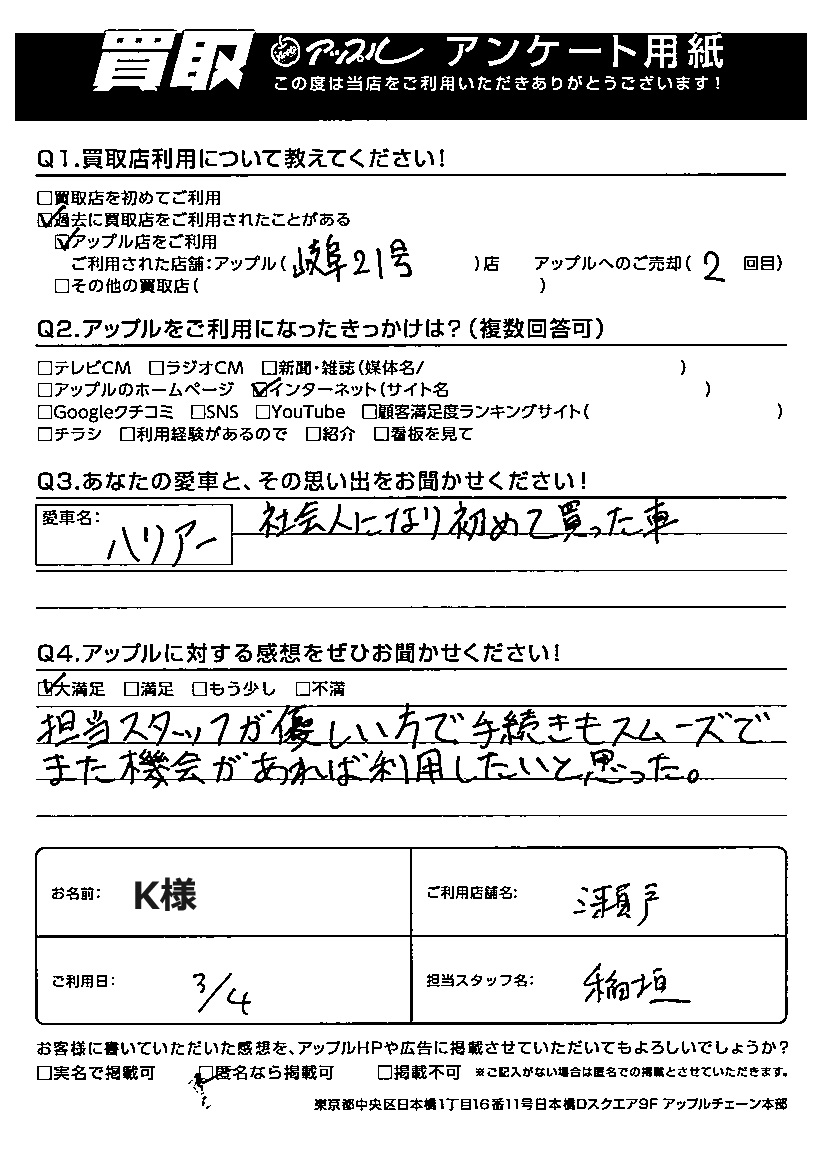 買取 アップル アンケート用紙
この度は当店をご利用いただきありがとうございます!
Q1.買取店利用について教えてください!
□買取店を初めてご利用
☑過去に買取店をご利用されたことがある
☑アップル店をご利用
ご利用された店舗:アップル(岐阜21号)店 アップルへのご売却(2回目)
□その他の買取店( )
Q2.アップルをご利用になったきっかけは?(複数回答可)
□テレビCM □ラジオCM □新聞・雑誌(媒体名/ )
□アップルのホームページ ☑インターネット(サイト名 )
□Googleクチコミ □SNS □YouTube □顧客満足度ランキングサイト( )
□チラシ □利用経験があるので □紹介 □看板を見て
Q3.あなたの愛車と、その思い出をお聞かせください!
愛車名: ハリアー 社会人になり初めて買った車
Q4.アップルに対する感想をぜひお聞かせください!
☑大満足 □満足 □もう少し □不満
担当スタッフが優しい方で手続きもスムーズで
また機会があれば利用したいと思った。
お名前: K様 ご利用店舗名: 瀬戸
ご利用日: 3/4 担当スタッフ名: 稲垣
お客様に書いていただいた感想を、アップルHPや広告に掲載させていただいてもよろしいでしょうか?
□実名で掲載可 ☑匿名なら掲載可 □掲載不可 ※ご記入がない場合は匿名での掲載とさせていただきます。
東京都中央区日本橋1丁目16番11号日本橋Dスクエア9F アップルチェーン本部